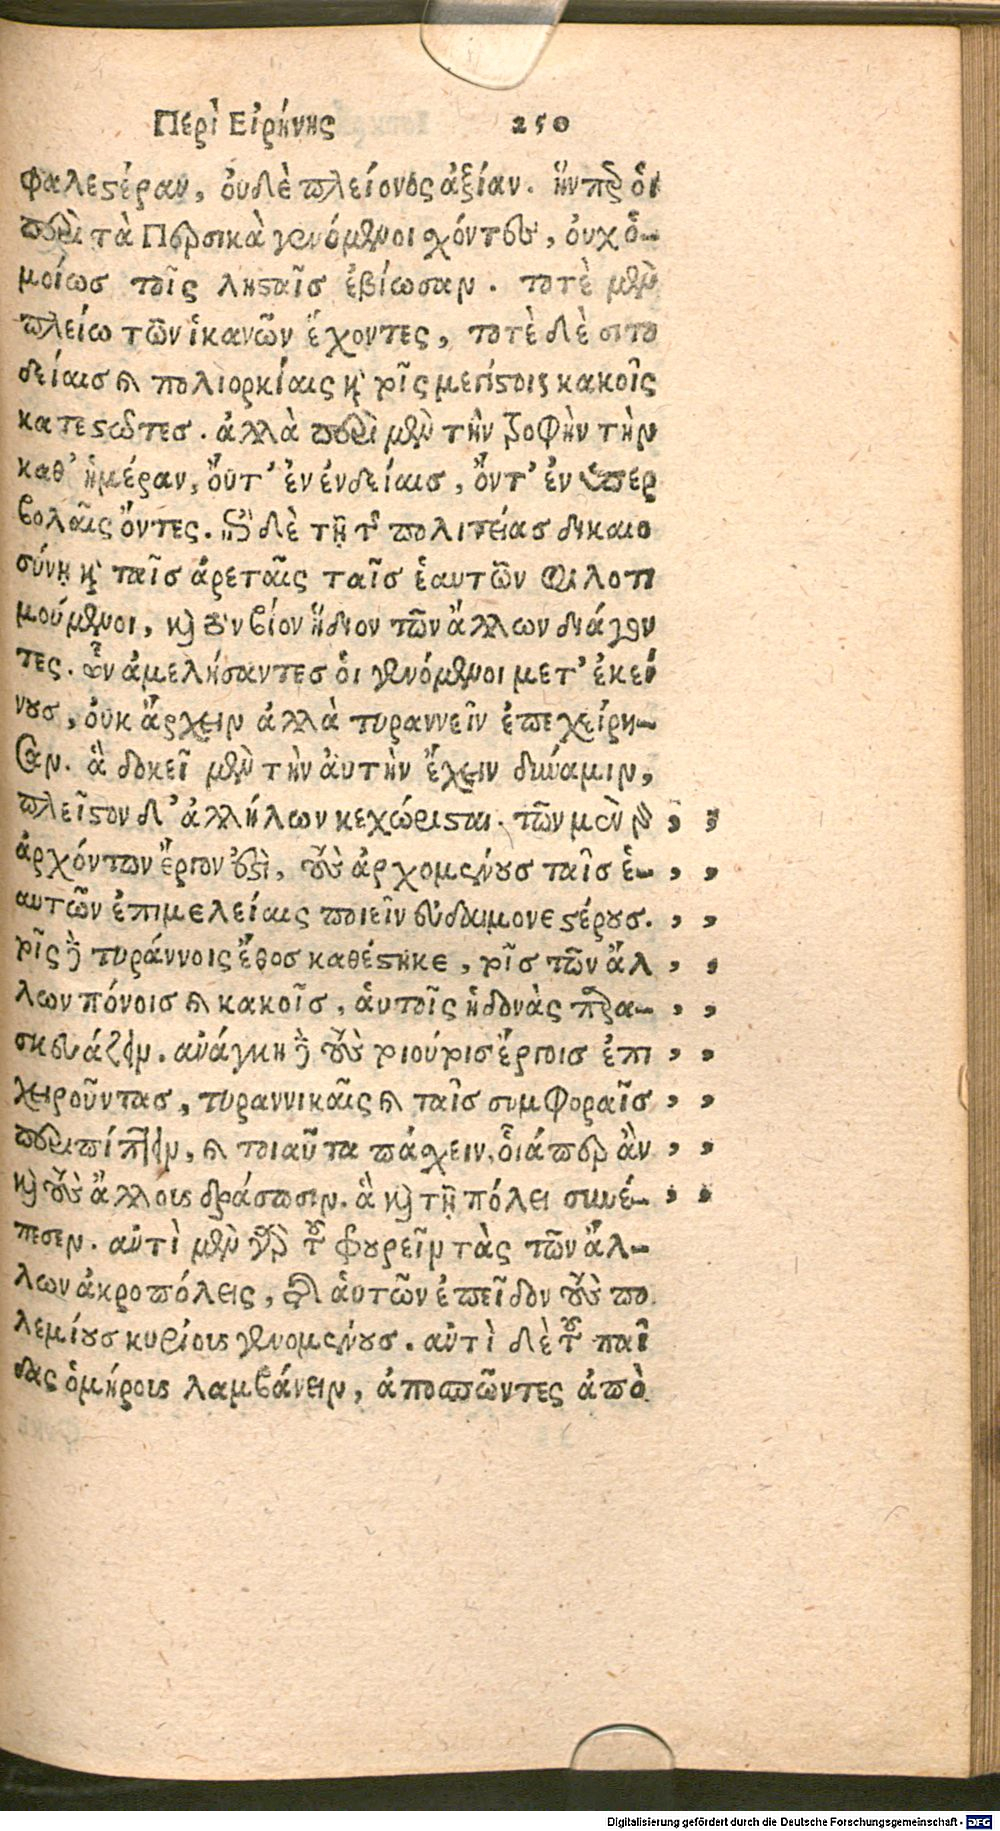 Περὶ Εἰρήνης 250
φαλεστέραν, οὐδὲ πλείονος ἀξίαν. ἥνπερ οἱ
περὶ τὰ Περσικὰ γενόμενοι χόντες, οὐχ ὁ-
μοίως τοῖς λησταῖς ἐβίωσαν. τοτὲ μὲν
πλείω τῶν ἱκανῶν ἔχοντες, τοτὲ δὲ σιτο
δείαις καὶ πολιορκίαις καὶ τοῖς μεγίστοις κακοῖς
κατεστῶτες. ἀλλὰ περὶ μὲν τὴν τροφὴν τὴν
καθ' ἡμέραν, οὔτ' ἐν ἐνδείαις, οὔτ' ἐν ὑπερ
βολαῖς ὄντες. ἐπὶ δὲ τῇ τῆς πολιτείας δικαιο
σύνῃ καὶ ταῖς ἀρεταῖς ταῖς ἑαυτῶν φιλοτι
μούμενοι, καὶ τὸν βίον ἥδιον τῶν ἄλλων διάγον
τες. ὧν ἀμελήσαντες οἱ γενόμενοι μετ' ἐκεί
νους, οὐκ ἄρχειν ἀλλὰ τυραννεῖν ἐπεχείρη-
σαν. ἃ δοκεῖ μὲν τὴν αὐτὴν ἔχειν δύναμιν,
πλεῖστον δ' ἀλλήλων κεχώρισται. τῶν μὲν γὰρ , ,
ἀρχόντων ἔργον ἐστὶ, τοὺς ἀρχομένους ταῖς ἑ- , ,
αυτῶν ἐπιμελείαις ποιεῖν εὐδαιμονεστέρους. , ,
τοῖς δὲ τυράννοις ἔθος καθέστηκε, τοῖς τῶν ἄλ , ,
λων πόνοις καὶ κακοῖς, αὑτοῖς ἡδονὰς παρα- , ,
σκευάζειν. ἀνάγκη δὲ τοὺς τοιούτοις ἔργοις ἐπι , ,
χειροῦντας, τυραννικαῖς καὶ ταῖς συμφοραῖς , ,
περιπίπτειν, καὶ τοιαῦτα πάσχειν, οἷάπερ ἂν , ,
καὶ τοὺς ἄλλους δράσωσιν. ἃ καὶ τῇ πόλει συνέ- , ,
πεσεν. ἀντὶ μὲν γὰρ τοῦ φρουρεῖν τὰς τῶν ἄλ-
λων ἀκροπόλεις, τῆς αὑτῶν ἐπεῖδον τοὺς πο
λεμίους κυρίους γενομένους. ἀντὶ δὲ τοῦ παῖ
δας ὁμήρους λαμβάνειν, ἀποσπῶντες ἀπὸ
Digitalisierung gefördert durch die Deutsche Forschungsgemeinschaft - DFG